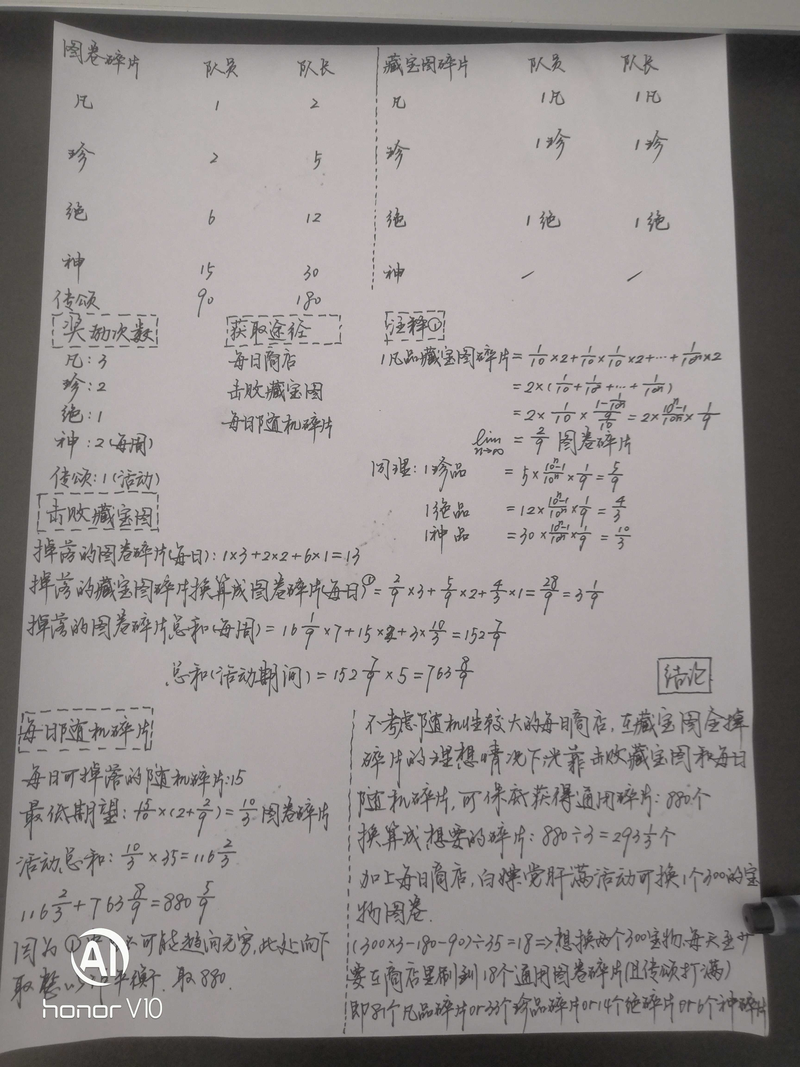 图卷碎片 队员 队长
凡 1 2
珍 2 5
绝 6 12
神 15 30
传颂 90 180
藏宝图碎片 队员 队长
凡 1凡 1凡
珍 1珍 1珍
绝 1绝 1绝
神 / /
奖励次数
凡:3
珍:2
绝:1
神:2(每周)
传颂:1(活动)
获取途径
每日商店
击败藏宝图
每日随机碎片
注释①
1凡品藏宝图碎片=1/10×2+1/10×1/10×2+…+1/10ⁿ×2
=2×(1/10+1/10²+…+1/10ⁿ)
=2×1/10×(1-1/10ⁿ)/(9/10)=2×(10ⁿ-1)/10ⁿ×1/9
lim n→∞ =2/9 图卷碎片
同理:1珍品 =5×(10ⁿ-1)/10ⁿ×1/9=5/9
1绝品 =12×(10ⁿ-1)/10ⁿ×1/9=4/3
1神品 =30×(10ⁿ-1)/10ⁿ×1/9=10/3
击败藏宝图
掉落的图卷碎片(每日):1×3+2×2+6×1=13
掉落的藏宝图碎片换算成图卷碎片(每日)①=2/9×3+5/9×2+4/3×1=28/9=3 1/9
掉落的图卷碎片总和(每周)=16 1/9×7+15×2+3×10/3=152 7/9
总和(活动期间)=152 7/9×5=763 8/9
每日随机碎片
每日可掉落的随机碎片:15
最低期望:×(2+2/9)=10/3图卷碎片
活动总和:10/3×35=116 2/3
116 2/3+763 8/9=880 5/9
因为①中 不可能趋向无穷,此处向下
取整以 平衡,取880.
结论
不考虑随机性较大的每日商店,在藏宝图全掉
碎片的理想情况下,光靠击败藏宝图和每日
随机碎片,可保底获得通用碎片:880个
换算成想要的碎片:880÷3=293 1/3个
加上每日商店,白嫖党肝满活动可换1个300的宝
物图卷.
(300×3-180-90)÷35=18⇒想换两个300宝物,每天至少
要在商店里刷到18个通用图卷碎片(且传颂打满)
即81个凡品碎片or33个珍品碎片or14个绝碎片or6个神碎片
AI
honor V10